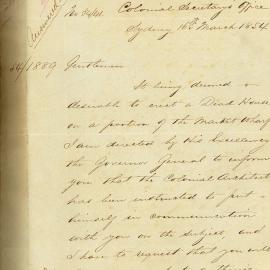 Answered
Colonial Secretary's Office
Sydney 16th March 1854
54/1889 Gentlemen
It being deemed
desirable to erect a Dead House
on a portion of the Market Wharf
I am directed by His Excellency
the Governor General to inform
you that the Colonial Architect
has been instructed to put
himself in communication
with you on the subject, and
I have to request that you will